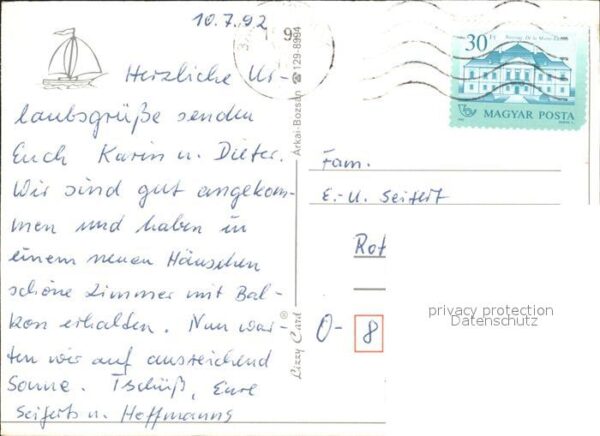 10.7.92
Herzliche Ur-
laubsgrüße senden
Euch Karin u. Dieter.
Wir sind gut angekom-
men und haben in
einem neuen Häuschen
schöne Zimmer mit Bal-
kon erhalten. Nun war-
ten wir auf ausreichend
Sonne. Tschüß, Eure
Seiferts u. Hoffmanns
Árkai-Bozsán ☎ 129-8994
Lizzy Card ®
30 Ft
MAGYAR POSTA
Fam.
E.-U. Seifert
Rot
O- 8
privacy protection
Datenschutz